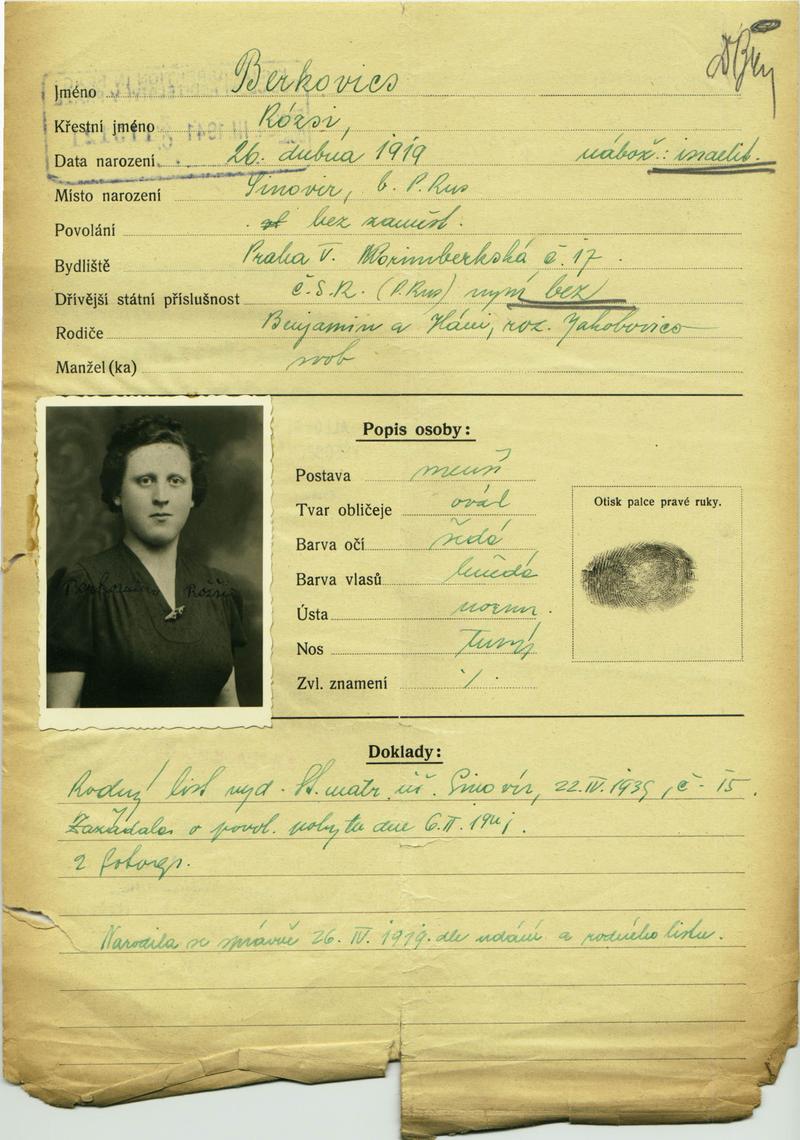 Jméno Berkovics
Křestní jméno Rózsi,
Data narození 26. dubna 1919 nábož.: israelit.
Místo narození Sinovir, b. P. Rus
Povolání bez zaměst.
Bydliště Praha V. Norimberkská č. 17.
Dřívější státní příslušnost č.S.R. (P. Rus) nyní bez
Rodiče Benjamin a Háni, roz. Jakobovics
Manžel(ka) svob
Popis osoby:
Postava menší
Tvar obličeje ovál
Barva očí šedá
Barva vlasů hnědá
Ústa norm.
Nos
Zvl. znamení /.
Otisk palce pravé ruky.
Berkovics Rózsi
Doklady:
Rodný list vyd. St. matr. úř. Sinovír, 22.IV.1939, č. 15.
Zažádala o povol. pobytu dne 6.II.1941.
2 fotogr.
Narodila se správně 26. IV. 1919. dle udání a rodného listu.